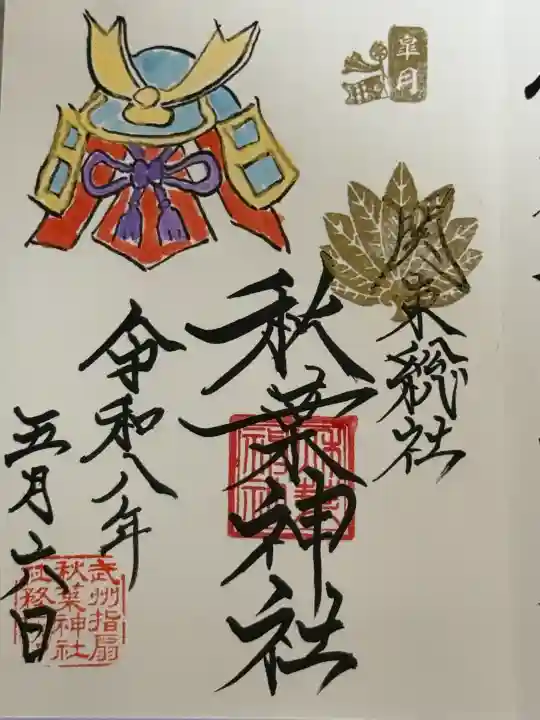 皐月
関東総社
秋葉神社
令和八年
五月六日
武州指扇
秋葉神社
社務